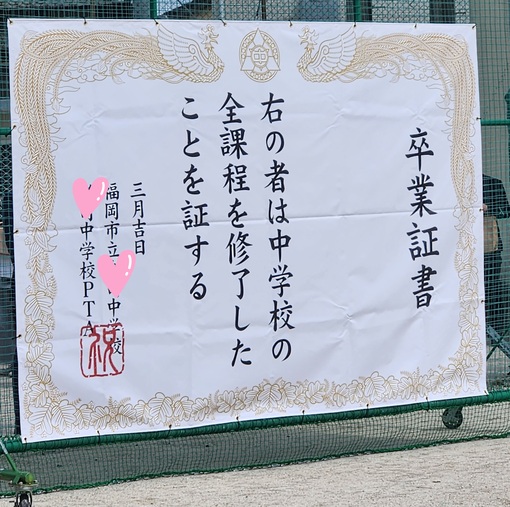 卒業証書
右の者は中学校の
全課程を修了した
ことを証する
三月吉日
福岡市立 中学校
中学校PTA
祝